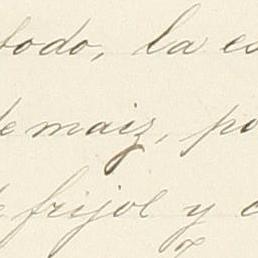 todo, la es
de maiz, po
e frijol y c